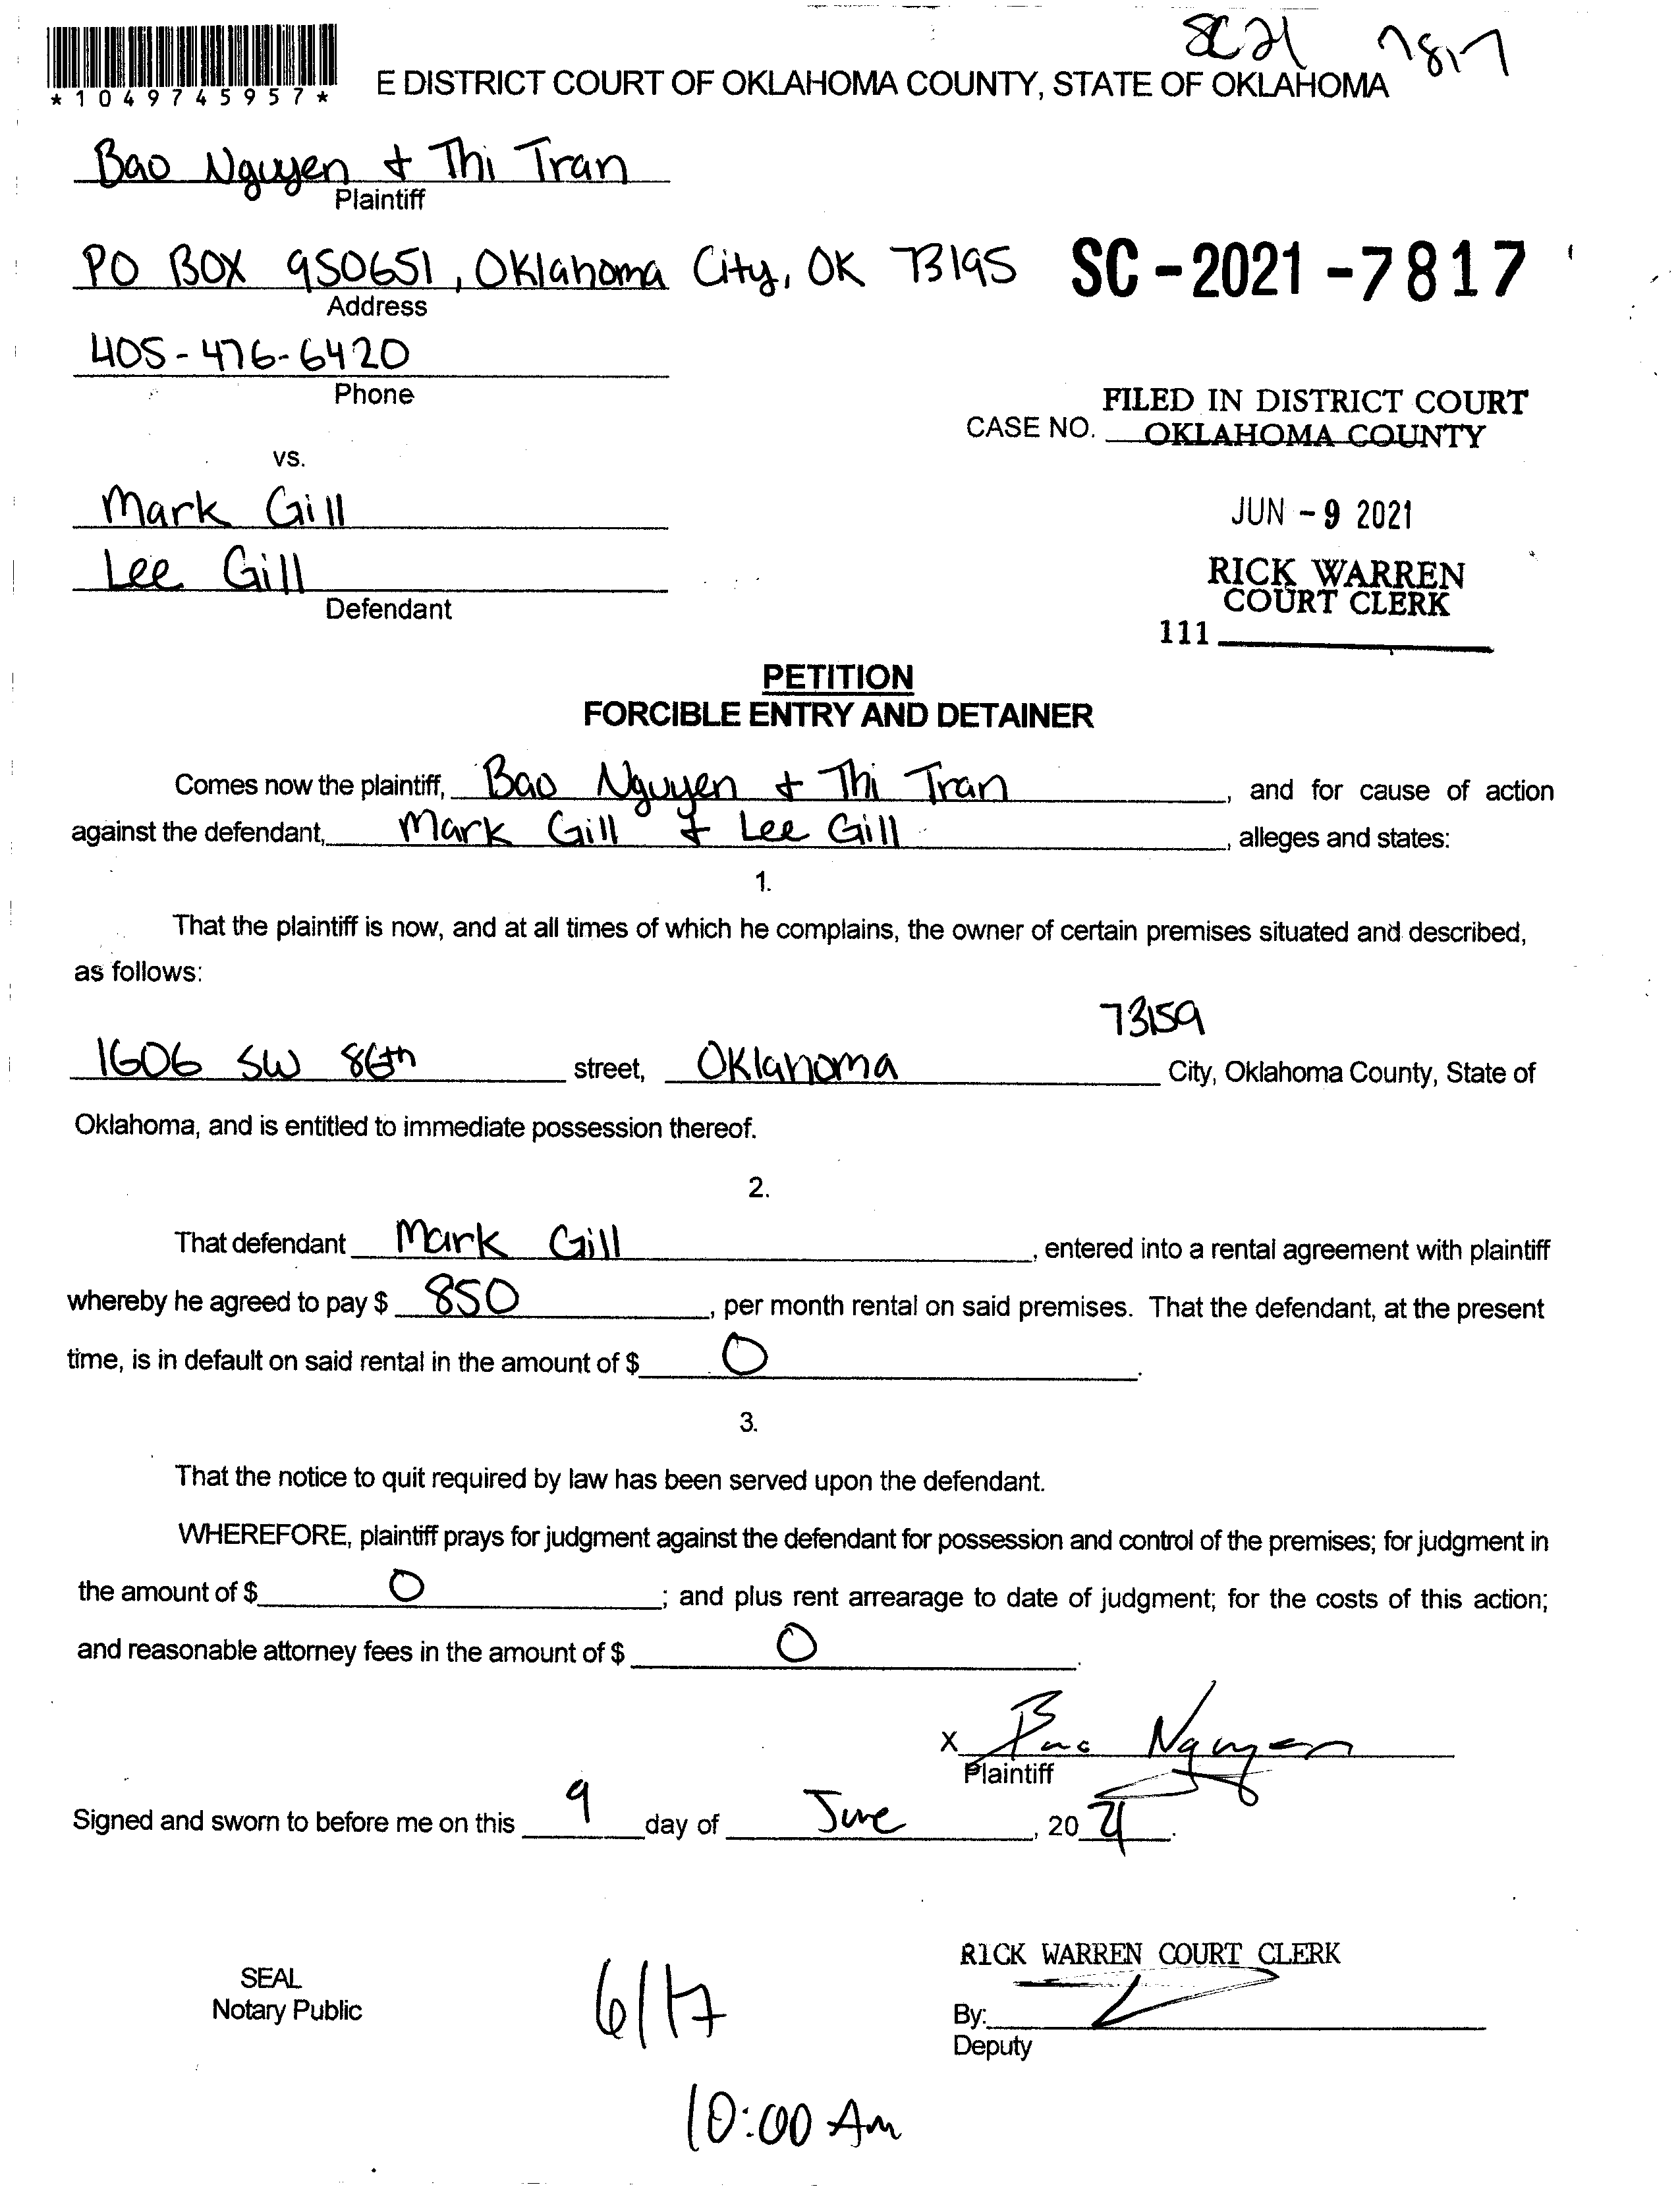 SC21 7817
*1049745957*
E DISTRICT COURT OF OKLAHOMA COUNTY, STATE OF OKLAHOMA
Bao Nguyen & Thi Tran
Plaintiff
PO BOX 950651, Oklahoma City, OK 73195
SC-2021-7817
Address
405-476-6420
Phone
FILED IN DISTRICT COURT
CASE NO. OKLAHOMA COUNTY
vs.
Mark Gill
JUN -9 2021
Lee Gill
RICK WARREN
COURT CLERK
Defendant
111
PETITION
FORCIBLE ENTRY AND DETAINER
Comes now the plaintiff, Bao Nguyen & Thi Tran, and for cause of action
against the defendant, Mark Gill & Lee Gill, alleges and states:
1.
That the plaintiff is now, and at all times of which he complains, the owner of certain premises situated and described,
as follows:
73159
1606 SW 86th street, Oklahoma City, Oklahoma County, State of
Oklahoma, and is entitled to immediate possession thereof.
2.
That defendant Mark Gill, entered into a rental agreement with plaintiff
whereby he agreed to pay $ 850, per month rental on said premises. That the defendant, at the present
time, is in default on said rental in the amount of $ 0.
3.
That the notice to quit required by law has been served upon the defendant.
WHEREFORE, plaintiff prays for judgment against the defendant for possession and control of the premises; for judgment in
the amount of $ 0; and plus rent arrearage to date of judgment; for the costs of this action;
and reasonable attorney fees in the amount of $ 0.
X Bao Nguyen
Plaintiff
Signed and sworn to before me on this 9 day of June, 2021.
RICK WARREN COURT CLERK
SEAL
Notary Public
6/17
By:
Deputy
10:00 Am